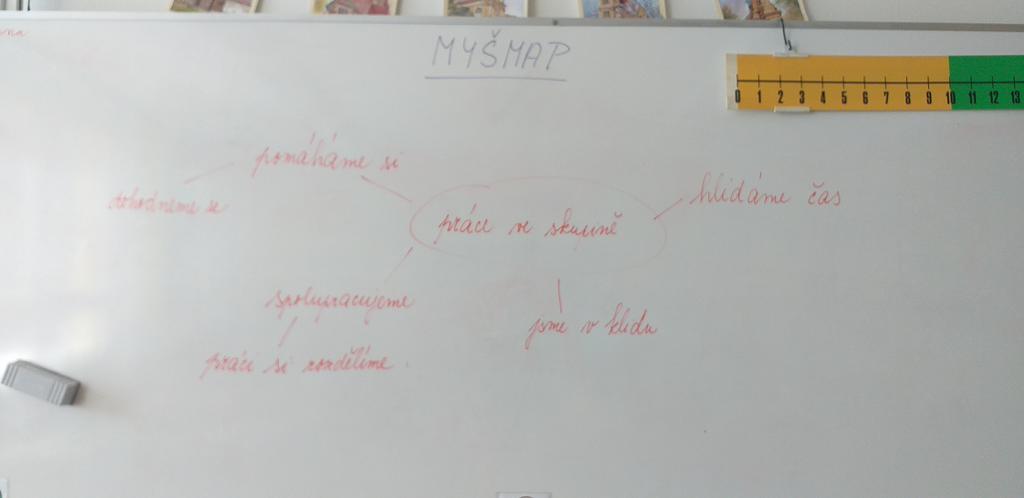 MYŠMAP
0 1 2 3 4 5 6 7 8 9 10 11 12 13
pomáháme si
dohodneme se
hlídáme čas
práce ve skupině
spolupracujeme
jsme v klidu
práci si rozdělíme.